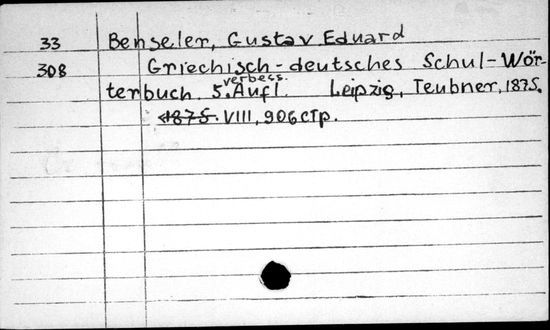 33 Benseler, Gustav Eduard
308 Griechisch-deutsches Schul-Wör-
terbuch. 5. verbess. Aufl. Leipzig, Teubner, 1875.
1875. VIII, 906 стр.